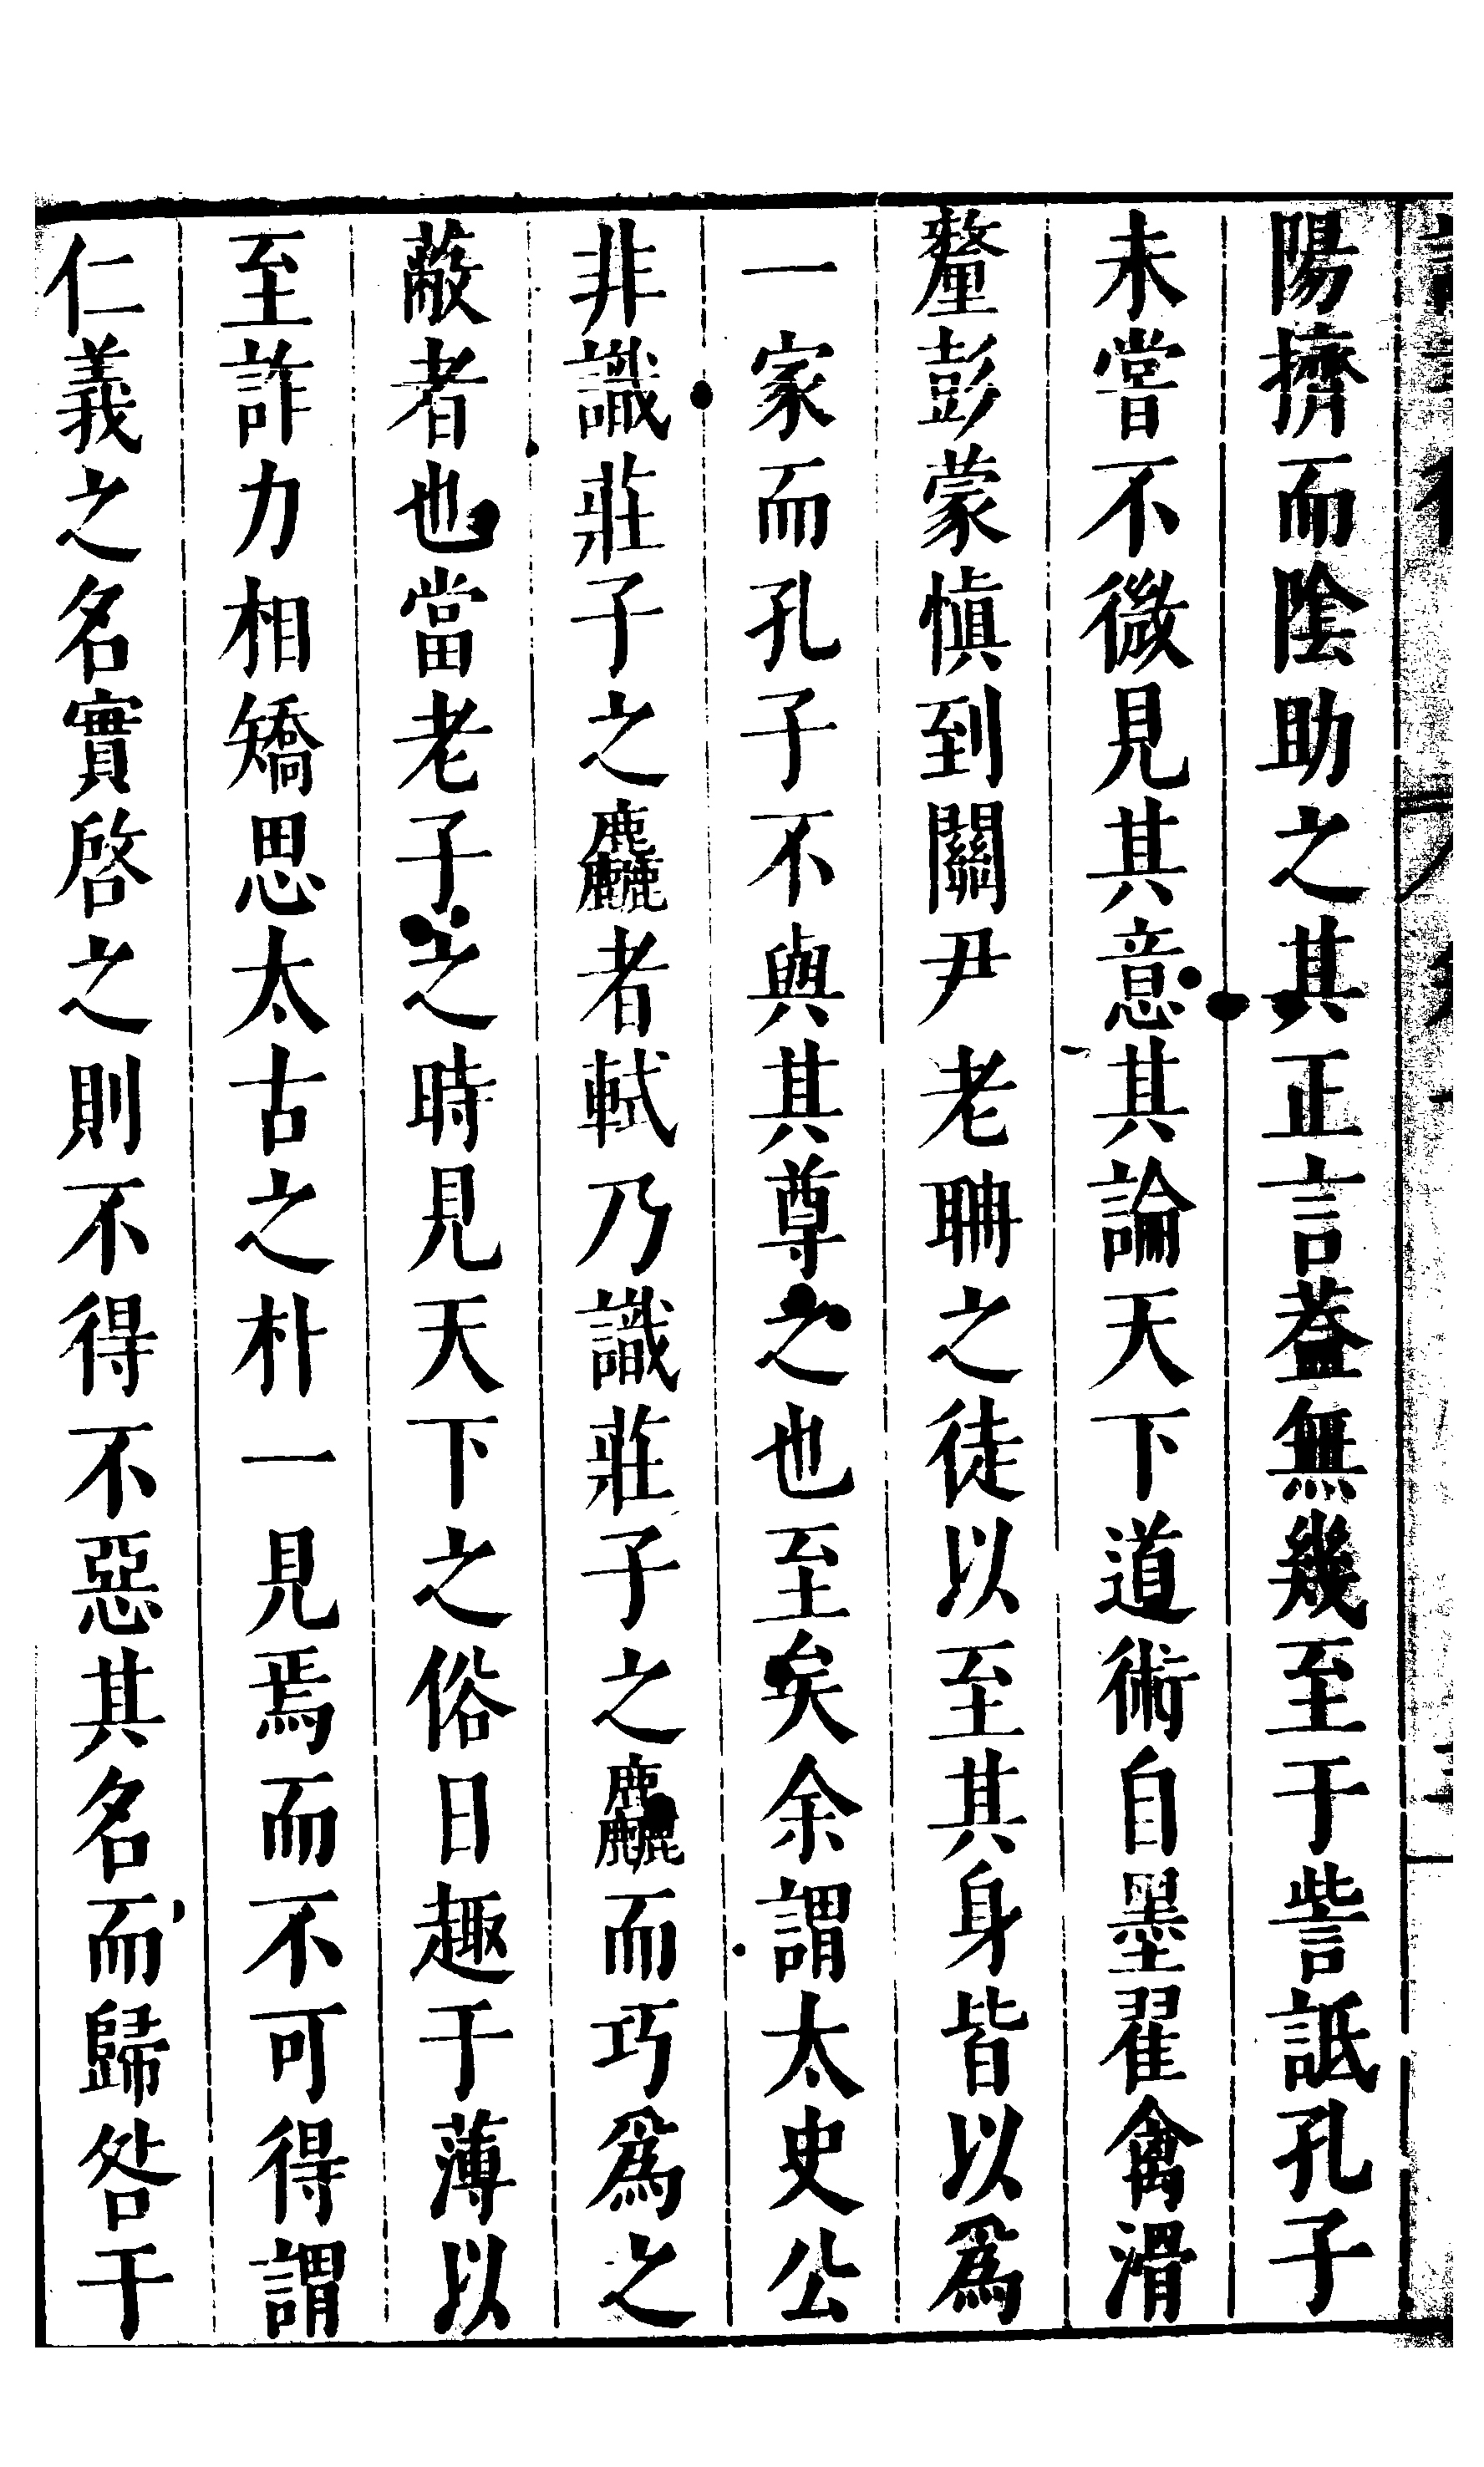 陽擠而陰助之其正言葢無幾至于訾詆孔子
未嘗不微見其意其論天下道術自墨翟禽滑
釐彭蒙慎到關尹老聃之徒以至其身皆以爲
一家而孔子不與其尊之也至矣余謂太史公
非識莊子之麤者軾乃識莊子之麤而巧爲之
蔽者也當老子之時見天下之俗日趣于薄以
至詐力相矯思太古之朴一見焉而不可得謂
仁義之名實啓之則不得不惡其名而歸咎于